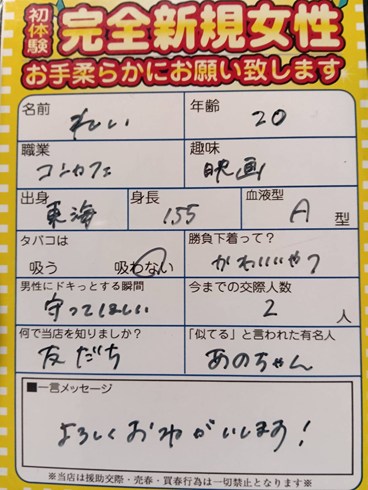 初体験 完全新規女性
お手柔らかにお願い致します
名前 れい 年齢 20
職業 コンカフェ 趣味 映画
出身 東海 身長 155 血液型 A 型
タバコは 吸う 吸わない 勝負下着って? かわいいやつ
男性にドキっとする瞬間 守ってほしい 今までの交際人数 2 人
何で当店を知りましたか? 友だち 「似てる」と言われた有名人 あのちゃん
■一言メッセージ
よろしくおねがいします!
※当店は援助交際・売春・買春行為は一切禁止となります※